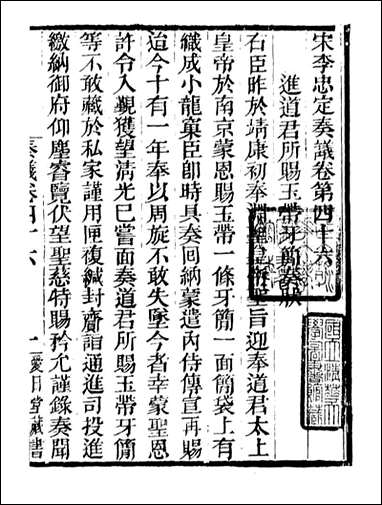 宋李忠定奏議卷第四十六
進道君所賜玉帶牙簡奏狀
右臣昨於靖康初奉淵聖皇帝聖旨迎奉道君太上
皇帝於南京蒙恩賜玉帶一條牙簡一面簡袋上有
織成小龍蘽臣卽時具奏囘納蒙遣內侍傳宣再賜
迨今十有一年奉以周旋不敢失墜今者幸蒙聖恩
許令入覲獲望淸光已嘗面奏道君所賜玉帶牙簡
等不敢藏於私家謹用匣複緘封齎詣通進司投進
繳納御府仰塵睿覽伏望聖慈特賜矜允謹錄奏聞
奏議卷四十六
一
愛日堂藏書